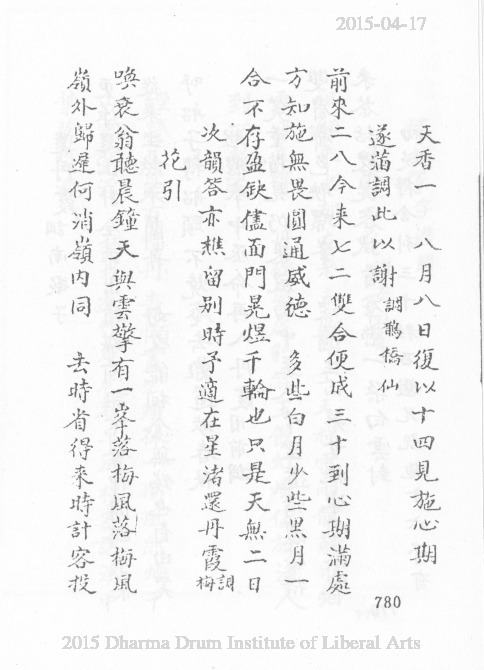 2015-04-17
天香一　八月八日復以十四見施心期
遂滿調此以謝 調鵲橋仙
前來二八今来七二雙合便成三十到心期滿處
方知施無畏圓通威德　多些白月少些黒月一
合不存盈缺儘面門晃煜千輪也只是天無二日
次韻答亦樵留别時予適在星渚還丹霞 調梅
花引
喚衰翁聽晨鐘天與雲擎有一峯落梅風落梅風
嶺外歸遲何消嶺内同　去時省得來時計客投
780
2015 Dharma Drum Institute of Liberal Arts